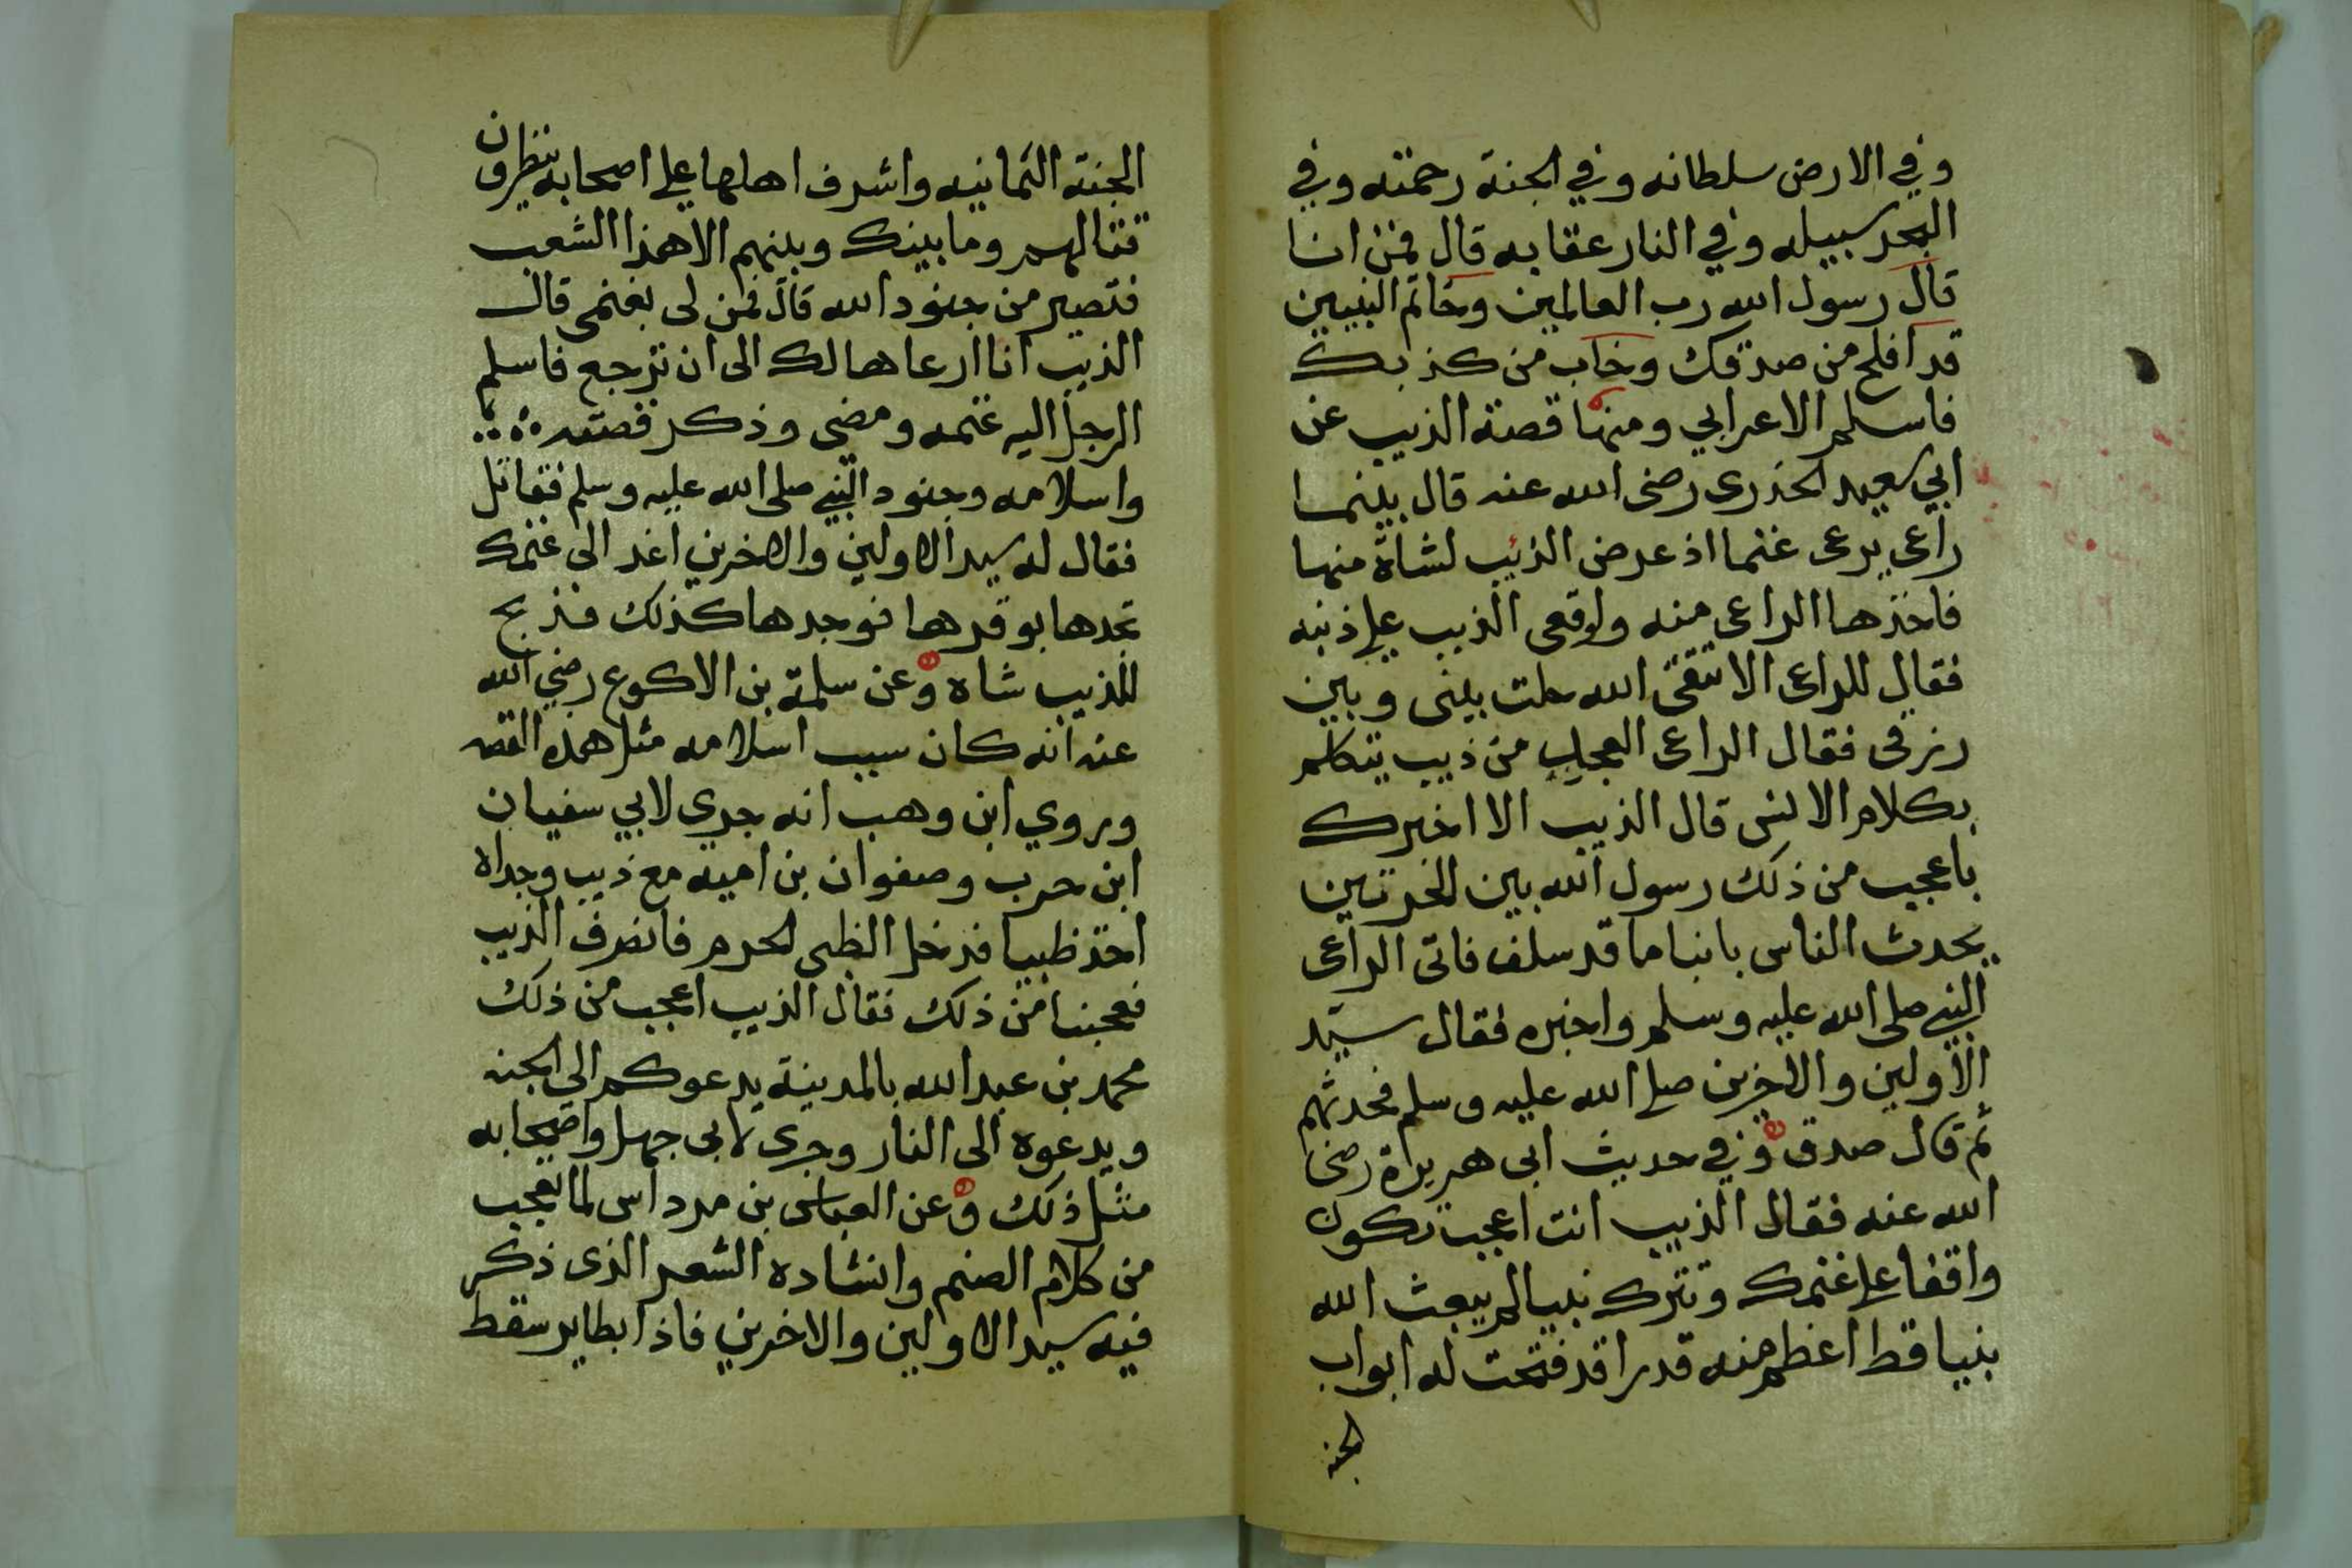 وفي الارض سلطانه وفي الجنة رحمته وفي
البحر سبيله وفي النار عقابه قال فمن انا
قال رسول الله رب العالمين وخاتم النبيين
قد افلح من صدقك وخاب من كذبك
فاسلم الاعرابي ومنها قصة الذيب عن
ابي سعيد الخدرى رضى الله عنه قال بينما
راعى يرعى غنما اذ عرض الذئب لشاة منها
فاخذها الراعى منه واقعى الذيب على ذنبه
فقال للراعى الا تتقى الله حلت بينى وبين
رزقى فقال الراعى العجب من ذيب يتكلم
بكلام الانس قال الذيب الا اخبرك
باعجب من ذلك رسول الله بين الحرتين
يحدث الناس بانبا ما قد سلف فاتى الراعى
النبي صلى الله عليه وسلم واخبره فقال سيد
الاولين والاخرين صلى الله عليه وسلم فحدثهم
ثم قال صدق وفي حديث ابى هريرة رضى
الله عنه فقال الذيب انت اعجب تكون
واقفا على غنمك وتترك نبيا لم يبعث الله
نبيا قط اعظم منه قدرا قد فتحت له ابواب
الجنه
الجنة الثمانيه واشرف اهلها على اصحابه ينظرون
قتالهم وما بينك وبينهم الا هذا الشعب
فتصير من جنود الله قال فمن لى بغنمى قال
الذيب انا ارعاها لك الى ان ترجع فاسلم
الرجل اليه غنمه ومضى وذكر قصته
واسلامه وجنود النبي صلى الله عليه وسلم فقاتل
فقال له سيد الاولين والاخرين اغد الى غنمك
تجدها بوفرها فوجدها كذلك فذبح
للذيب شاه وعن سلمة بن الاكوع رضي الله
عنه انه كان سبب اسلامه مثل هذه القصه
وروي ابن وهب انه جرى لابي سفيان
ابن حرب وصفوان بن اميه مع ذيب وجداه
اخذ ظبيا فدخل الظبى الحرم فانصرف الذيب
فعجبنا من ذلك فقال الذيب اعجب من ذلك
محمد بن عبد الله بالمدينة يدعوكم الى الجنه
ويدعوه الى النار وجرى لابى جهل واصحابه
مثل ذلك وعن العباس بن مرداس لما تعجب
من كلام الصنم وانشاده الشعر الذى ذكر
فيه سيد الاولين والاخرين فاذا بطاير سقط